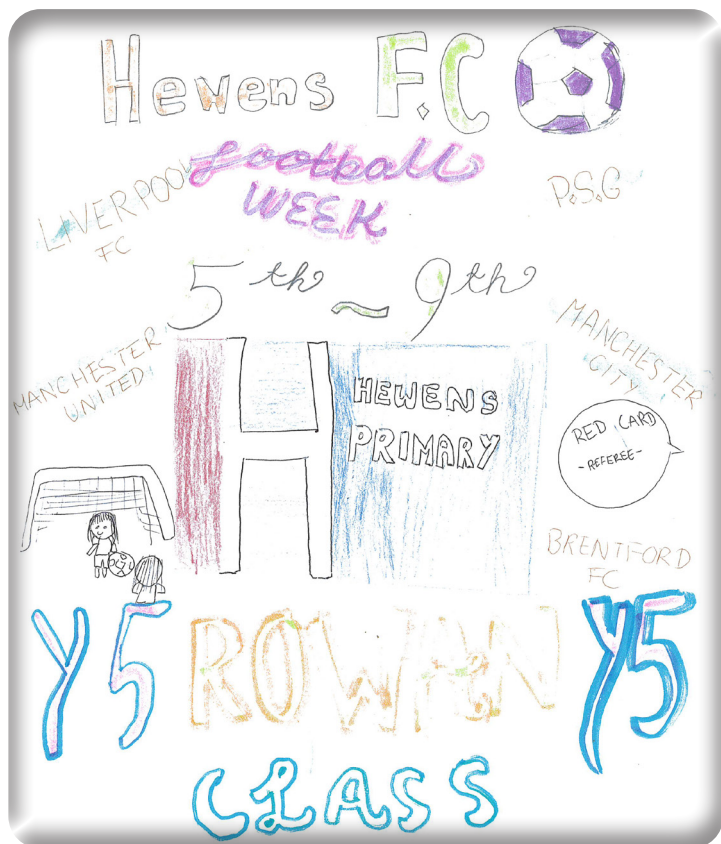 Hewens F.C
football
WEEK
LIVERPOOL
FC
P.S.G
5th ~ 9th
MANCHESTER
UNITED
MANCHESTER
CITY
HEWENS
PRIMARY
RED CARD
-REFEREE-
BRENTFORD
FC
Y5 ROWAN Y5
CLASS